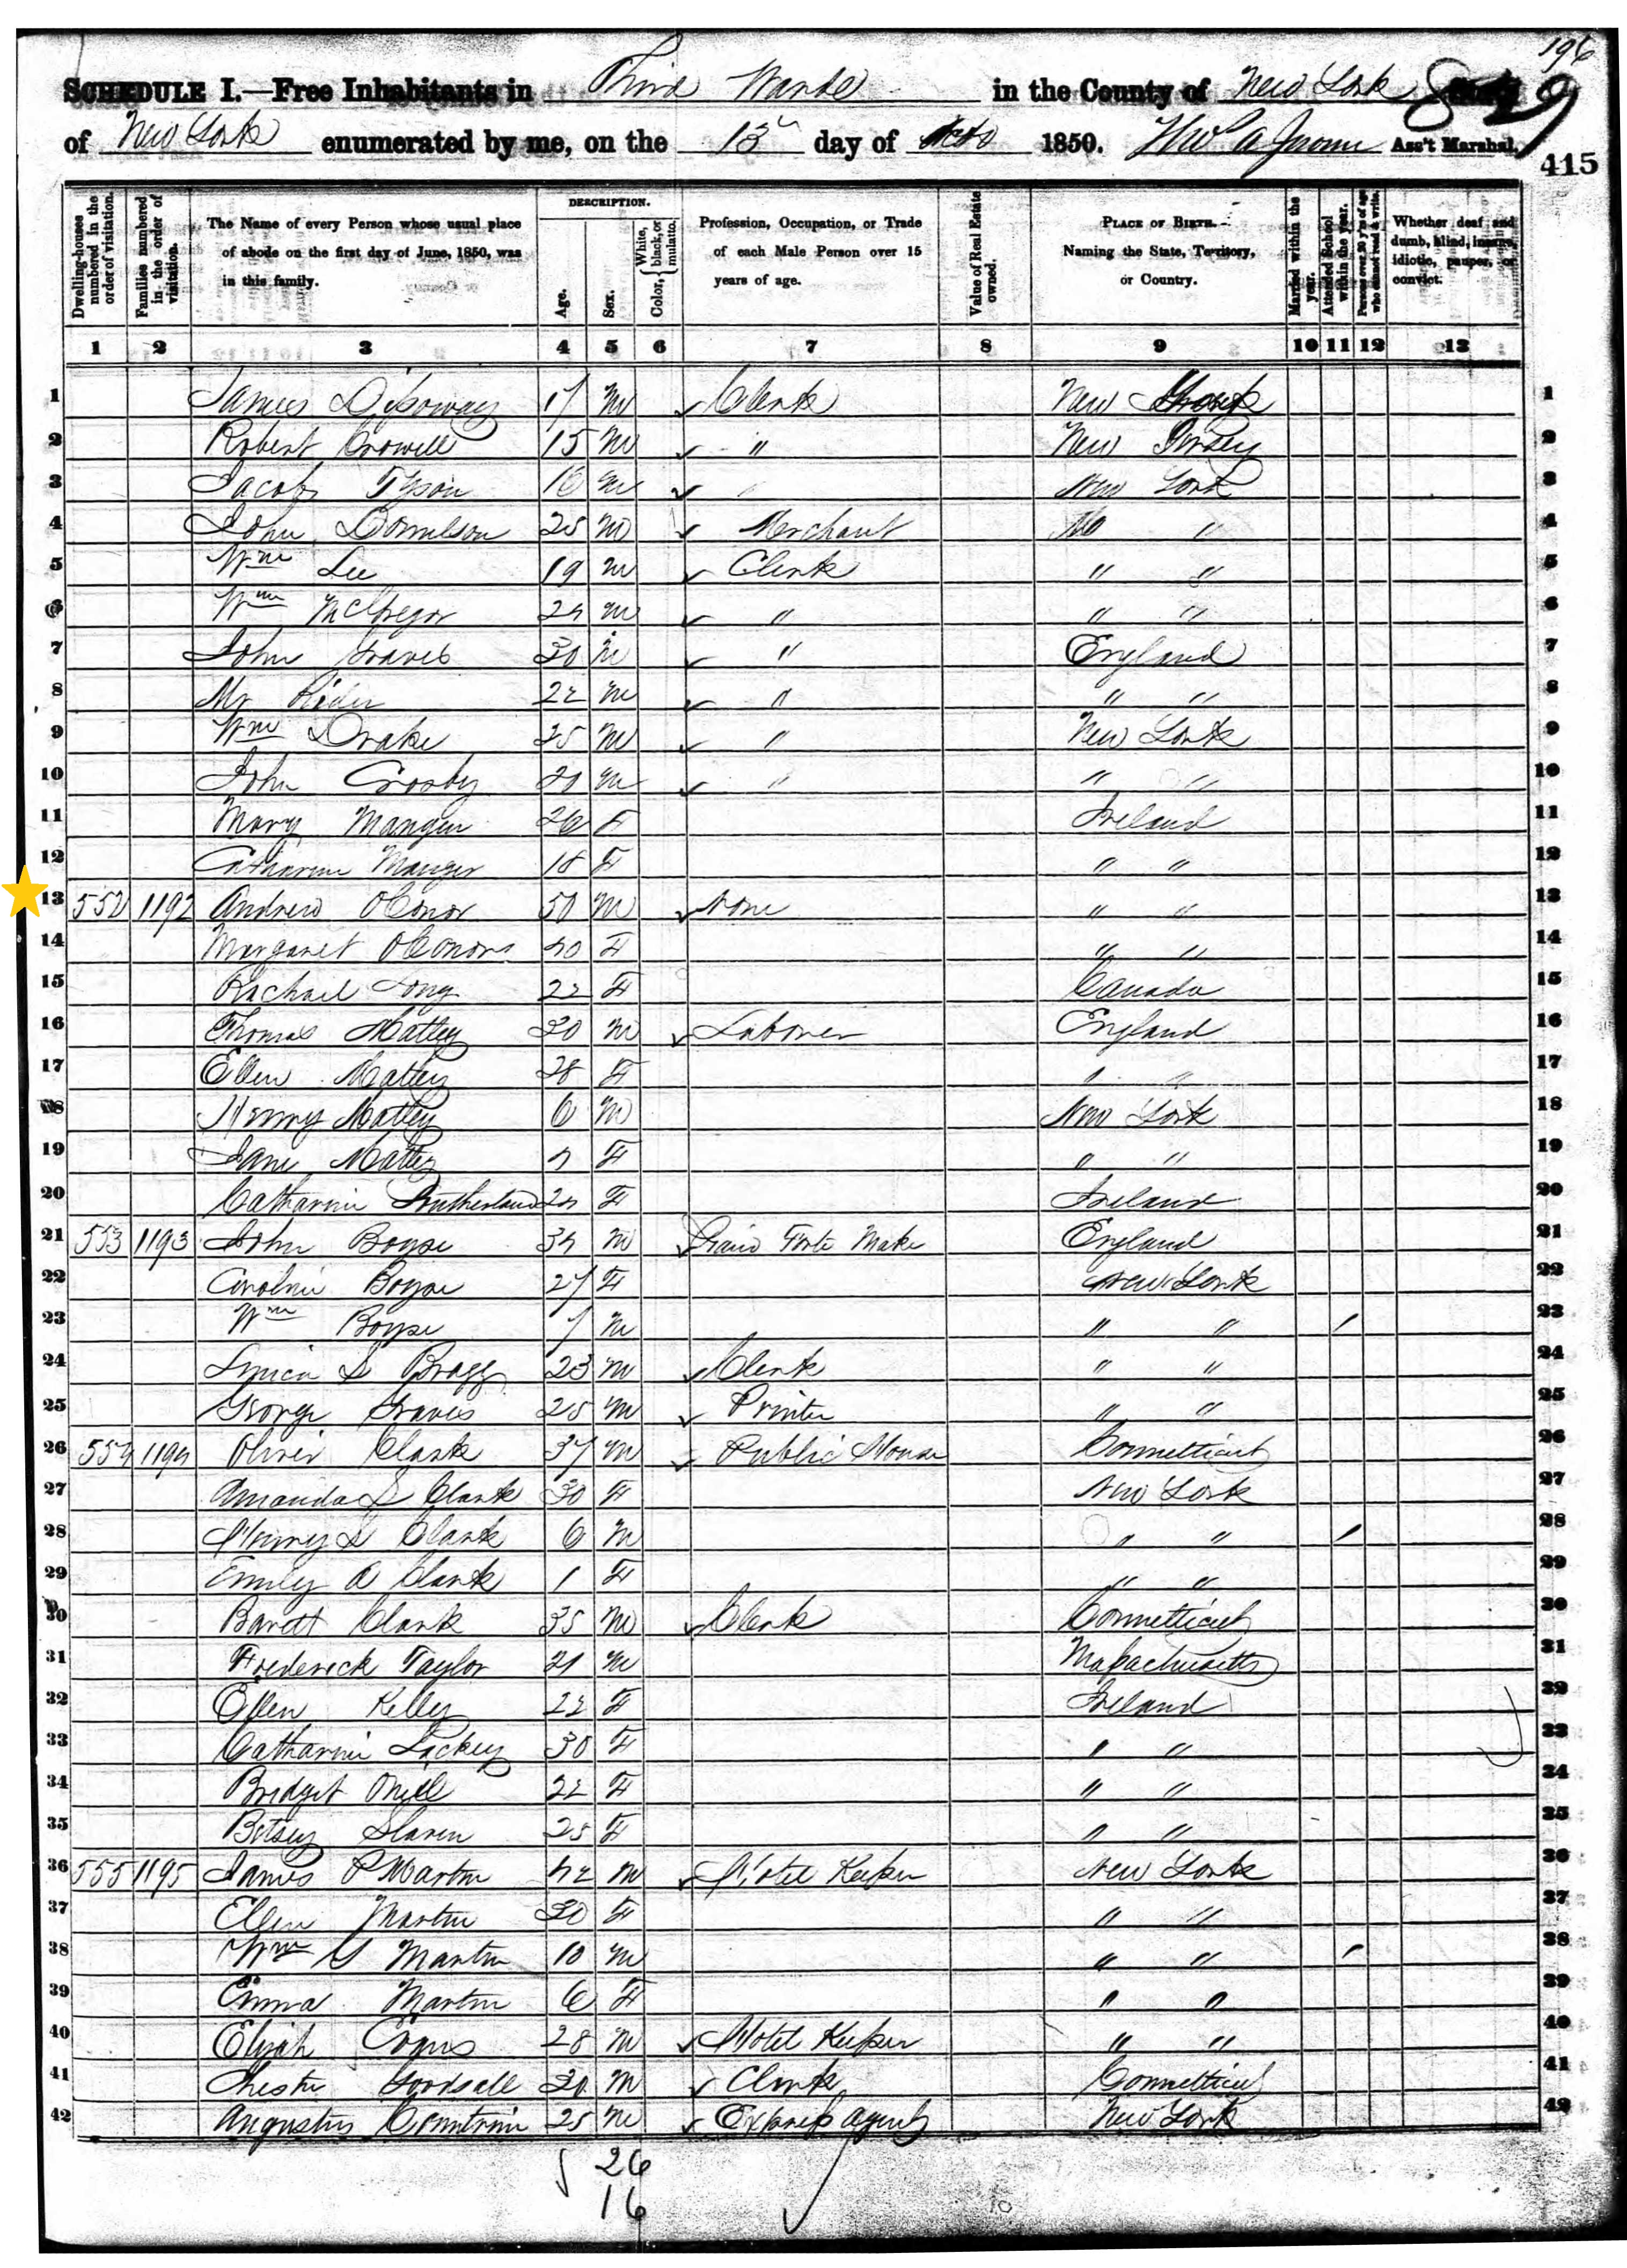 196
SCHEDULE I.—Free Inhabitants in Third Ward in the County of New York
829
of New York enumerated by me, on the 13 day of 1850. Ass't Marshal.
415
Dwelling-houses numbered in the order of visitation.
Families numbered in the order of visitation.
The Name of every Person whose usual place of abode on the first day of June, 1850, was in this family.
DESCRIPTION.
Age.
Sex.
Color, { White, black, or mulatto.
Profession, Occupation, or Trade of each Male Person over 15 years of age.
Value of Real Estate owned.
PLACE OF BIRTH. Naming the State, Territory, or Country.
Married within the year.
Attended School within the year.
Persons over 20 y'rs of age who cannot read & write.
Whether deaf and dumb, blind, insane, idiotic, pauper, or convict.
1 2 3 4 5 6 7 8 9 10 11 12 13
1 James 17 m Clerk New 1
2 Robert Crowell 15 m " New Jersey 2
3 Jacob Tyson 16 m " New York 3
4 John Donnelson 25 m Merchant " 4
5 Wm Lee 19 m Clerk " " 5
6 Wm McGregor 24 m " " " 6
7 John Graves 30 m " England 7
8 Mr Rider 22 m " " " 8
9 Wm Drake 25 m " New York 9
10 John Crosby 20 m " " " 10
11 Mary Mangin 26 F Ireland 11
12 Catharine 18 F " " 12
13 552 1192 Andrew OConor 50 m None " " 13
14 Margaret OConor 40 F " " 14
15 Rachael Long 22 F Canada 15
16 Thomas Mattey 30 m Laborer England 16
17 Ellen Mattey 28 F " " 17
18 Henry Mattey 6 m New York 18
19 Jane Mattey 4 F " " 19
20 Catharine Sutherland 24 F Ireland 20
21 553 1193 John Boyse 34 m Piano Forte Make England 21
22 Caroline Boyse 27 F New York 22
23 Wm Boyse 7 m " " / 23
24 S Bragg 23 m Clerk " " 24
25 George Graves 25 m Printer " " 25
26 554 1194 Oliver Clark 37 m Public House Connetticut 26
27 Amanda S Clark 30 F New York 27
28 Henry S Clark 6 m " " / 28
29 Emily A Clark 1 F " " 29
30 Clark 35 m Clerk Connetticut 30
31 Frederick Taylor 21 m Massachusetts 31
32 Ellen Kelly 22 F Ireland 32
33 Catharine Lackey 30 F " " 33
34 Bridget ONeill 22 F " " 34
35 Betsey Slaven 25 F " " 35
36 555 1195 James P Martin 42 m Hotel Keeper New York 36
37 Ellen Martin 30 F " " 37
38 Wm G Martin 10 m " " / 38
39 Emma Martin 6 F " " 39
40 Elijah 28 m Hotel Keeper " " 40
41 Chester Goodsall 30 m Clerk Connetticut 41
42 Augustus 25 m Express Agent New York 42
26
16
10